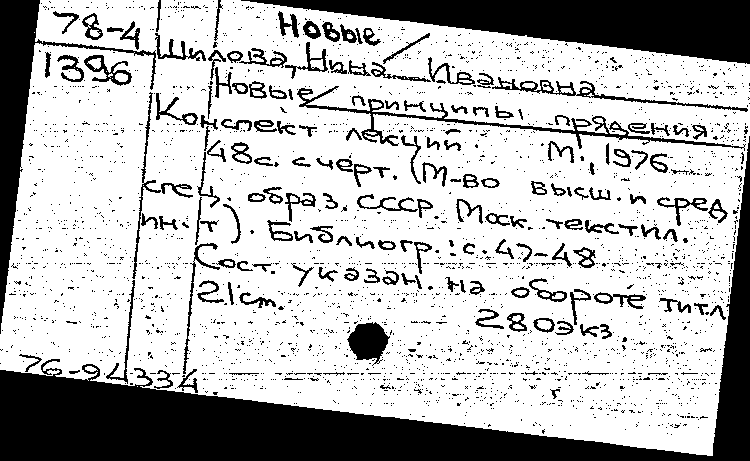 Новые
78-4
Шилова, Нина Ивановна
1396
Новые принципы прядения
Конспект лекций. М., 1976.
48с. с черт. (М-во высш. и сред.
спец. образ. СССР. Моск. текстил.
ин-т). Библиогр.: с. 47-48.
Сост. указан. на обороте титл
21 cm.
280 экз.
76-94334